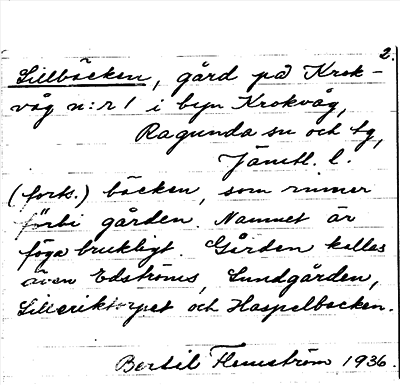 2.
Lillbäcken, gård på Krok-
våg n:r 1 i byn Krokvåg,
Ragunda sn och tg,
Jämtl. l.
(forts.) bäcken, som rinner
förbi gården. Namnet är
föga brukligt. Gården kallas
även Edströms, Sundgården,
Lilleriktorpet och Haspelbacken.
Bertil Flemström 1936.